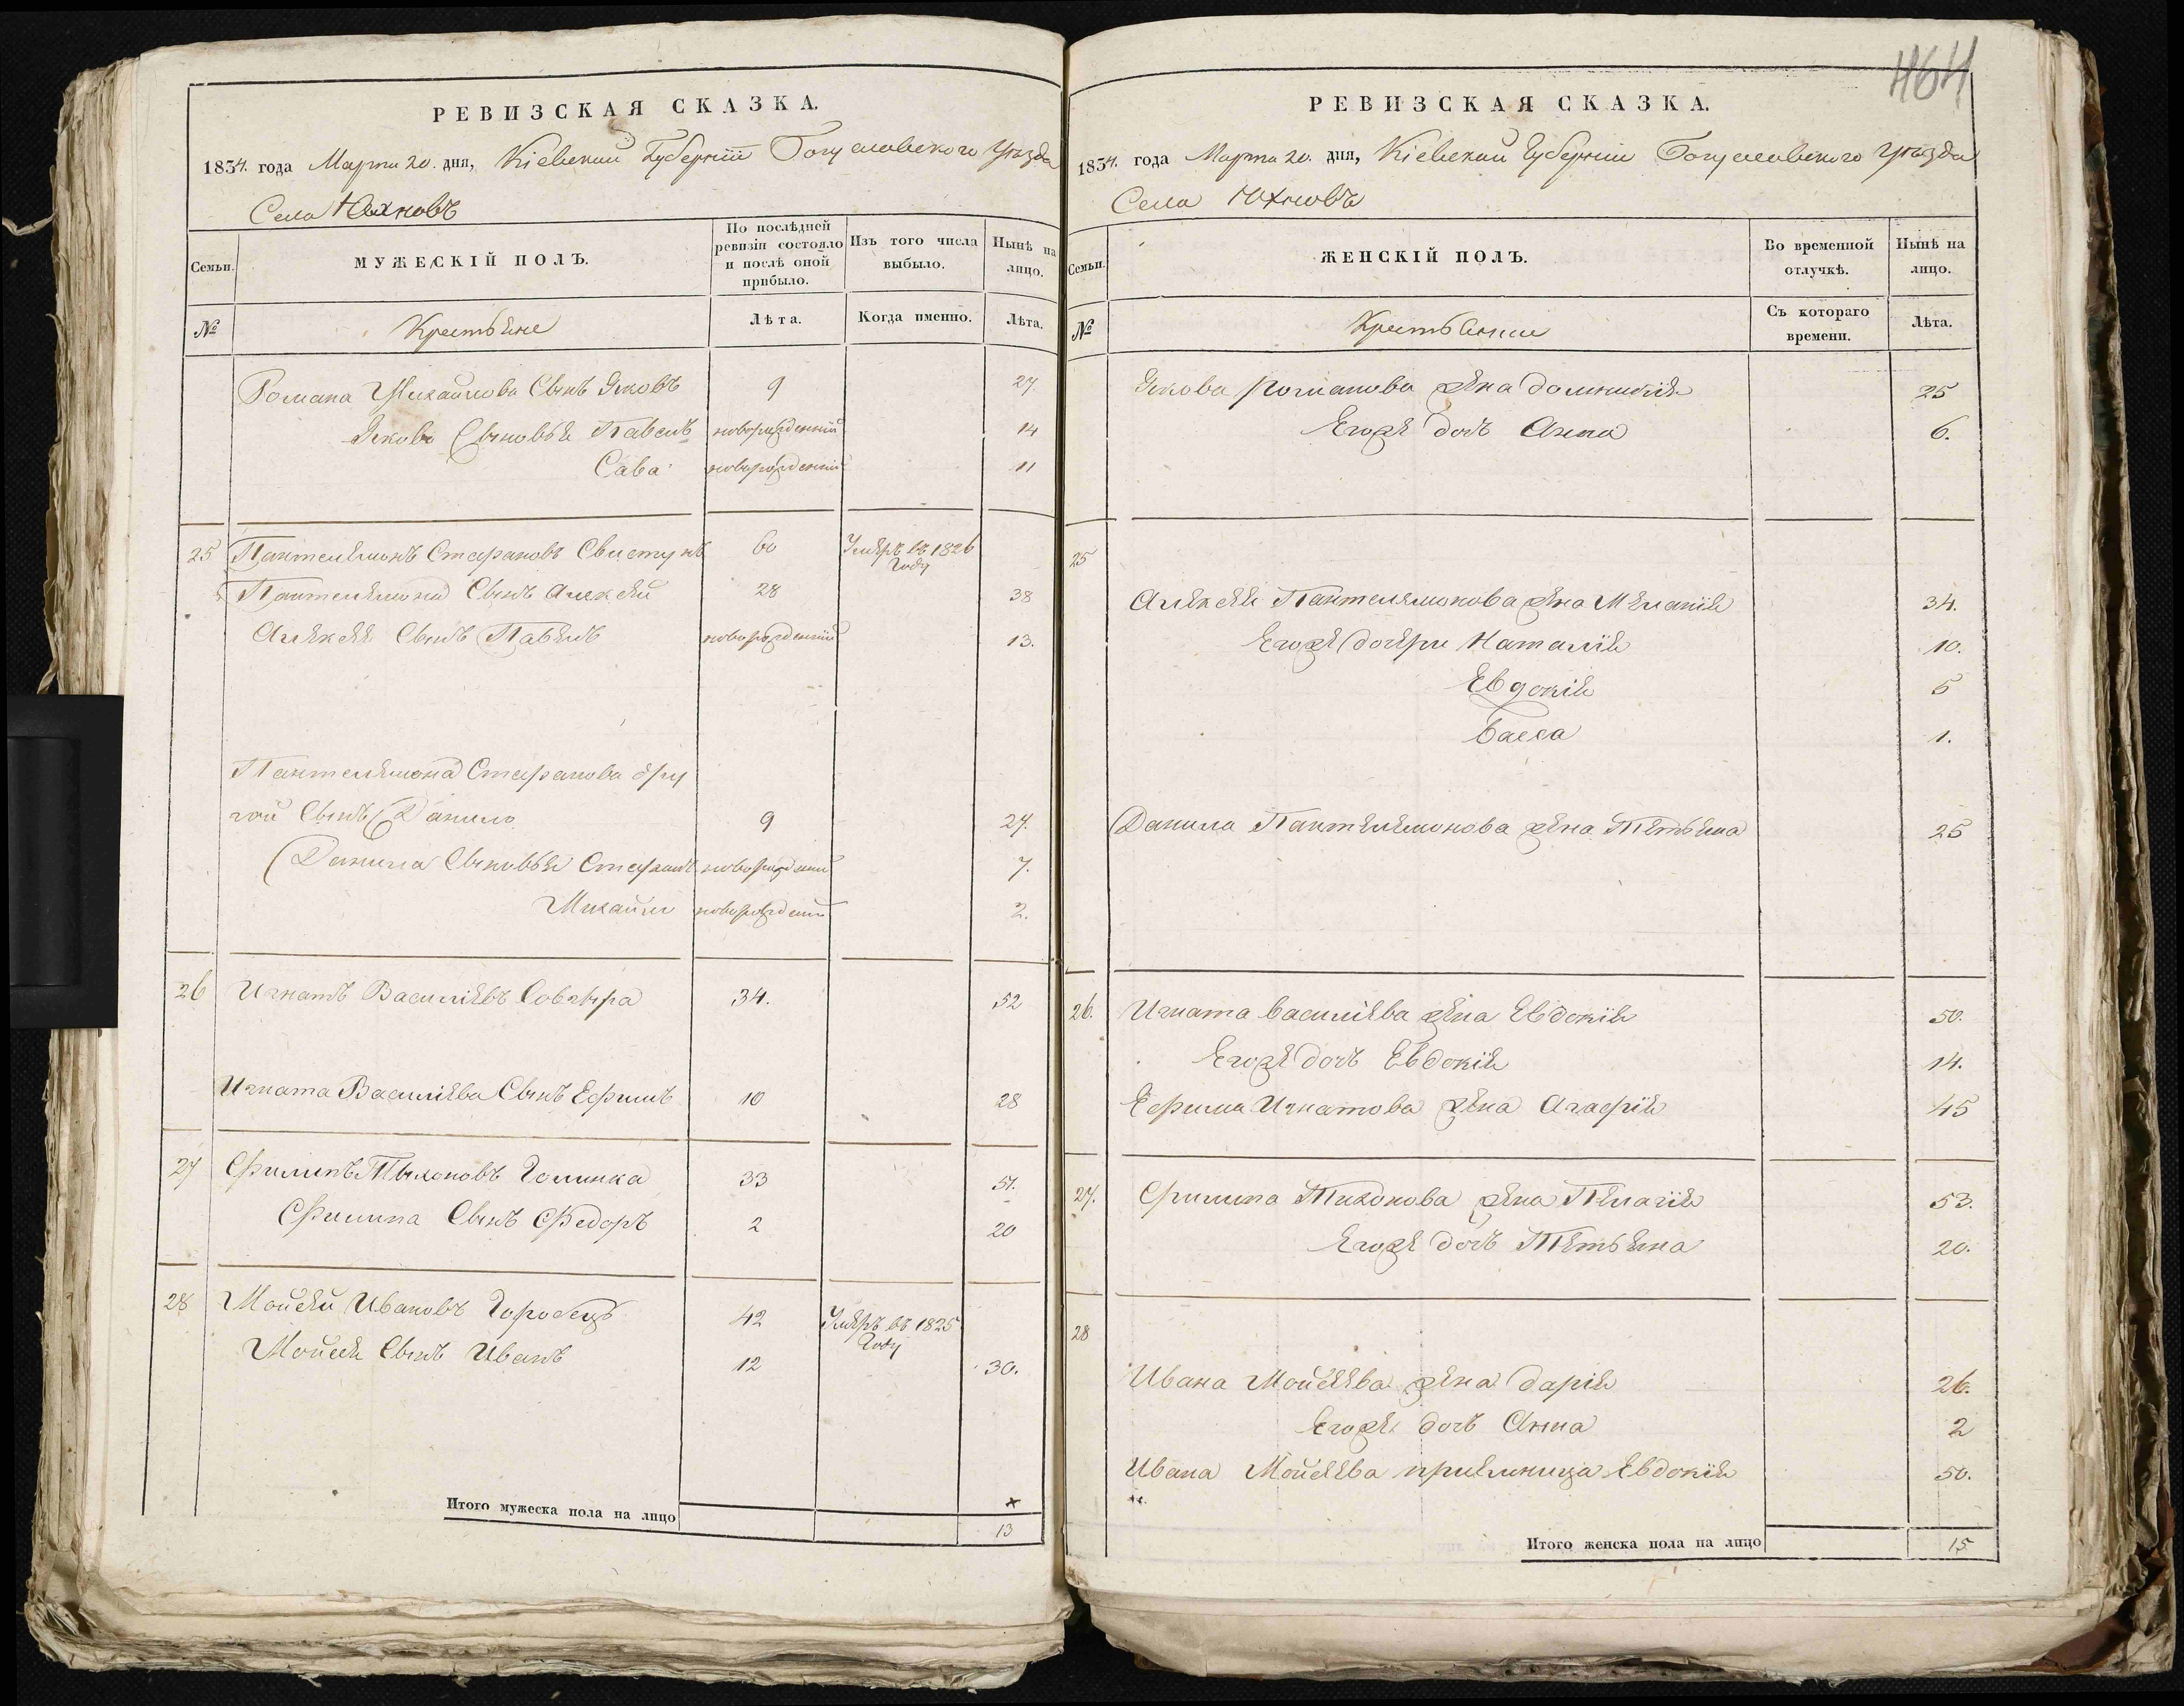 РЕВИЗСКАЯ СКАЗКА.
1834. года Марта 20. дня, Кіевской Губерніи Богуславского Уѣзда
Села Юхновъ
Семьи.
МУЖЕСКІЙ ПОЛЪ.
По послѣдней ревизіи состояло и послѣ оной прибыло.
Изъ того числа выбыло.
Нынѣ на лицо.
№
Крестьяне
Лѣта.
Когда именно.
Лѣта.
Романа Михайлова Сынъ Яковъ 9 27.
Якова Сыновья Павелъ новорожденній 14
Сава новорожденній 11
25 Пантелямонъ Стефановъ Свистунъ 60 Умеръ въ 1826 Году
Пантелямона Сынъ Алексей 28 38
Алексея Сынъ Павелъ новорожденній 13.
Пантелямона Стефанова дру
гой Сынъ Данило 9 27.
Данила Сыновья Стефанъ новорожденій 7.
Михайло новорожденій 2.
26 Игнатъ Василіевъ Совгыра 34. 52
Игната Василіева Сынъ Ефимъ 10 28
27 Филипъ Тыхоновъ Голинка 33 51.
Филипа Сынъ Федоръ 2 20
28 Мойсей Ивановъ Горобецъ 42 Умеръ въ 1825 Году
Мойсея Сынъ Иванъ 12 30.
Итого мужеска пола на лицо 13
464
РЕВИЗСКАЯ СКАЗКА.
1834. года Марта 20. дня, Кіевской Губерніи Богуславского Уѣзда
Села Юхновъ
Семьи.
ЖЕНСКІЙ ПОЛЪ.
Во временной отлучкѣ.
Нынѣ на лицо.
№
Крестьянки
Съ котораго времени.
Лѣта.
Якова Романова жена Домникія 25
Егоже дочъ Анна 6.
25
Алексея Пантелямонова жена Меланія 34.
Егоже дочери Наталія 10.
Евдокія 5
Васса 1.
Данила Пантелемонова жена Тетьяна 25
26. Игната Василіева жена Евдокія 50.
Егоже дочъ Евдокія 14.
Ефима Игнатова жена Агафія 45
27. Филипа Тихонова жена Пелагія 53.
Егоже дочъ Тетьяна 20.
28
Ивана Мойсеева жена Дарія 26.
Егоже дочъ Анна 2
Ивана Мойсеева приемница Евдокія 50.
Итого женска пола на лицо 15